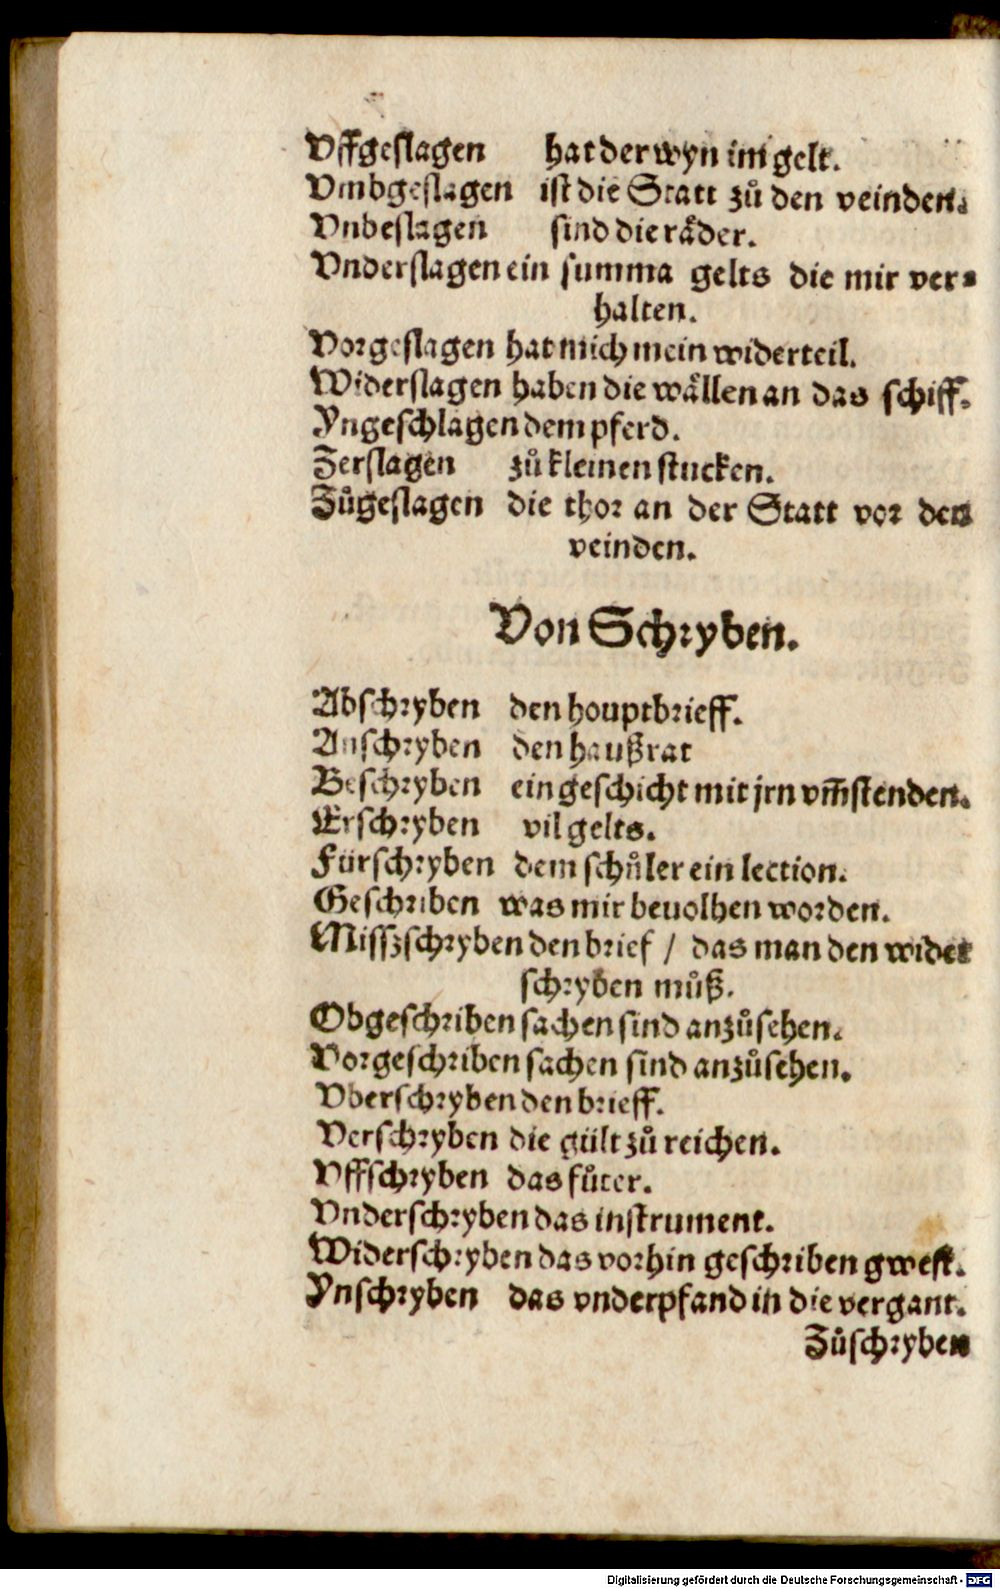 Vffgeslagen hat der wyn im gelt.
Vmbgeslagen ist die Statt zů den veinden.
Vnbeslagen sind die räder.
Vnderslagen ein summa gelts die mir ver⸗
halten.
Vorgeslagen hat mich mein widerteil.
Widerslagen haben die wällen an das schiff.
Yngeschlagen dem pferd.
Zerslagen zů kleinen stucken.
Zůgeslagen die thor an der Statt vor den
veinden.
Von Schryben.
Abschryben den houptbrieff.
Anschryben den haußrat
Beschryben ein geschicht mit jrn vm̃stenden.
Erschryben vil gelts.
Fürschryben dem schůler ein lection.
Geschriben was mir beuolhen worden.
Misszschryben den brief / das man den wider
schryben můß.
Obgeschriben sachen sind anzůsehen.
Vorgeschriben sachen sind anzůsehen.
Vberschryben den brieff.
Verschryben die gült zů reichen.
Vffschryben das fůter.
Vnderschryben das instrument.
Widerschryben das vorhin geschriben gwest.
Ynschryben das vnderpfand in die vergant.
Zůschryben
Digitalisierung gefördert durch die Deutsche Forschungsgemeinschaft - DFG